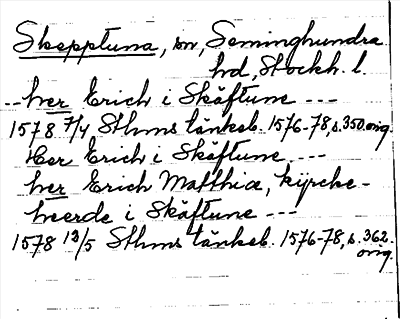 Skepptuna, sn, Seminghundra
hd, Stockh. l.
--- her Erich i Skäftune ---
1578 7/4 Sthms tänkeb. 1576-78, s. 350. orig.
Her Erich i Skäftune ---
her Erich Matthia, kyrche-
heerde i Skäftune ---
1578 13/5 Sthms tänkeb. 1576-78, s. 362.
orig.